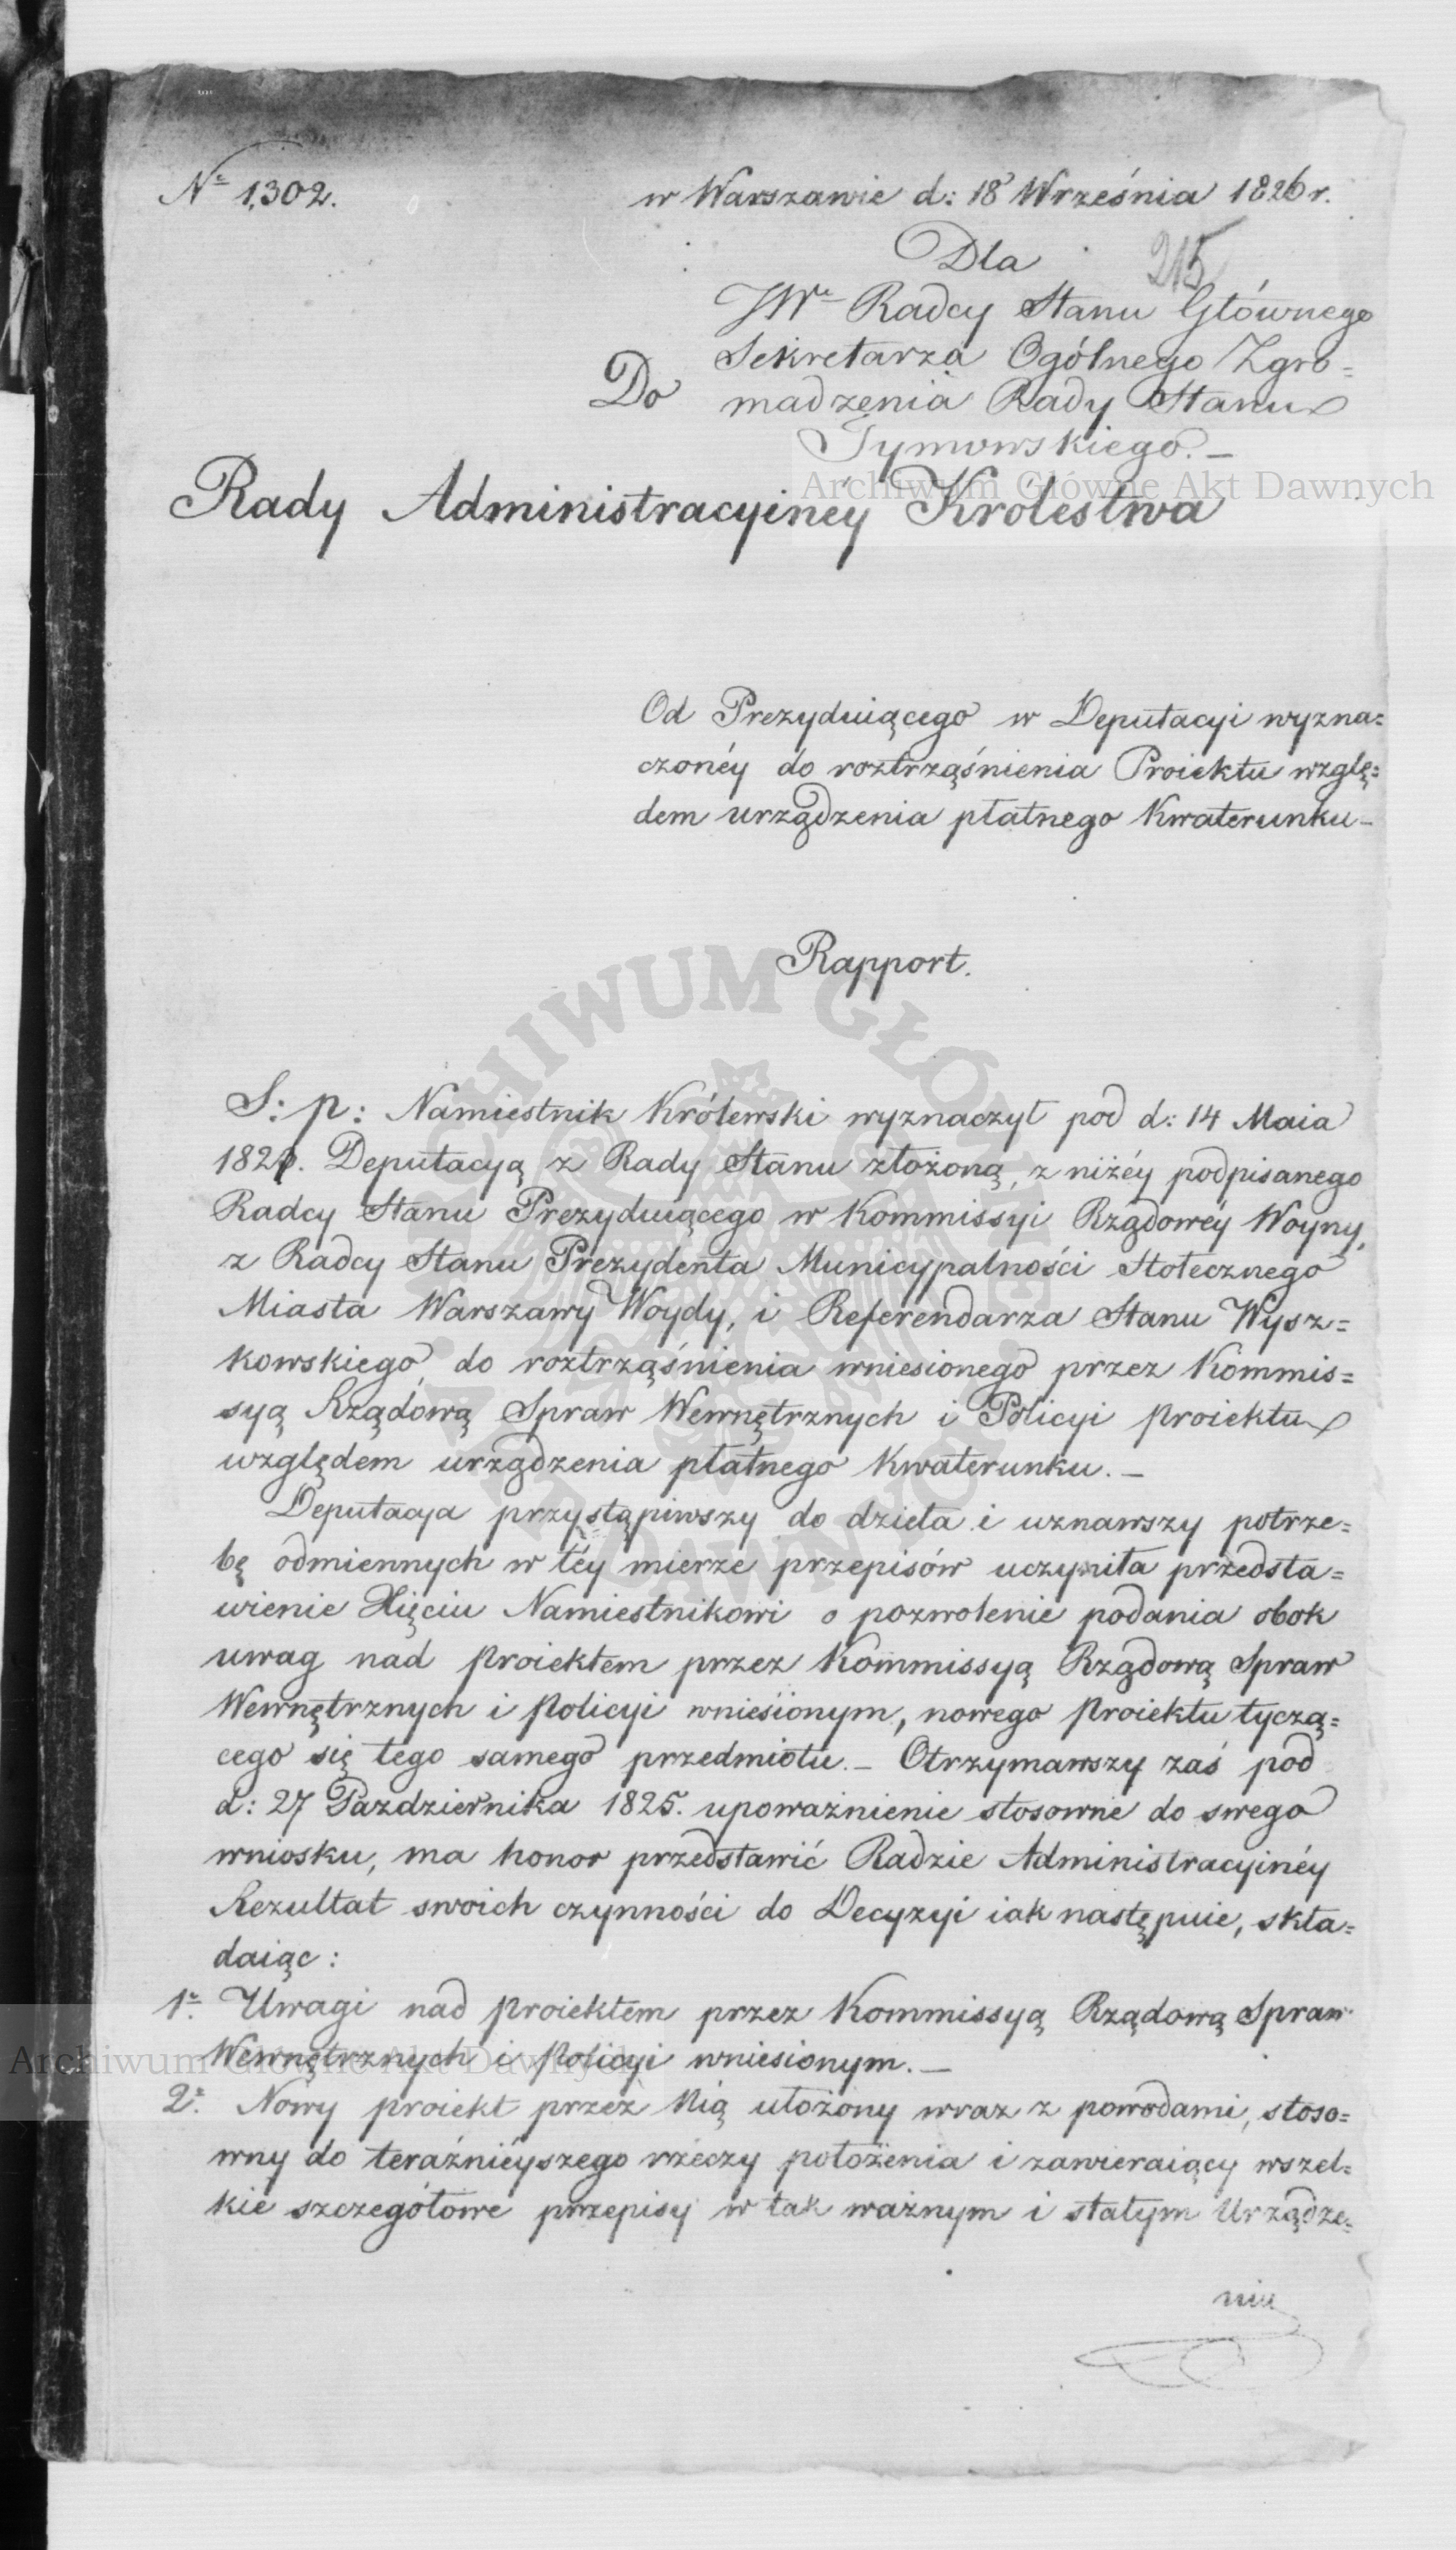 Nº 1302.
w Warszawie d: 18 Września 1826 r.
215
Dla
JWº Radcy Stanu Głównego
Sekretarza Ogólnego Zgro=
madzenia Rady Stanu
Tymowskiego. –
Do
Rady Administracyinéy Królestwa
Archiwum Główne Akt Dawnych
Od Prezyduiącego w Deputacyi wyzna=
czonéy do roztrząśnienia Proiektu wzglę=
dem urządzenia płatnego Kwaterunku –
Rapport.
ARCHIWUM GŁÓWNE AKT DAWNYCH
S: p: Namiestnik Królewski wyznaczył pod d: 14 Maia
182 . Deputacyą z Rady Stanu złożoną, z niżéy podpisanego
Radcy Stanu Prezyduiącego w Kommissyi Rządowéy Woyny,
z Radcy Stanu Prezydenta Municypalności Stołecznego
Miasta Warszawy Woydy, i Referendarza Stanu Wysz=
kowskiego, do roztrząśnienia wniesionego przez Kommis=
syą Rządową Spraw Wewnętrznych i Policyi proiektu
względem urządzenia płatnego Kwaterunku. –
Deputacya przystąpiwszy do dzieła i uznawszy potrze=
bę odmiennych w téy mierze przepisów uczyniła przedsta=
wienie Xięciu Namiestnikowi o pozwolenie podania obok
uwag nad proiektem przez Kommissyą Rządową Spraw
Wewnętrznych i Policyi wniesionym, nowego proiektu tyczą=
cego się tego samego przedmiotu. – Otrzymawszy zaś pod
d: 27 Pazdziernika 1825. upoważnienie stosowne do swego
wniosku, ma honor przedstawić Radzie Administracyinéy
Rezultat swoich czynności do Decyzyi iak następuie, skła=
daiąc:
1º. Uwagi nad proiektem przez Kommissyą Rządową Spraw
Wewnętrznych i Policyi wniesionym. –
Archiwum Główne Akt Dawnych
2º. Nowy proiekt przez Nią ułożony wraz z powodami, stoso=
wny do teraźnieyszego rzeczy położenia i zawieraiący wszel=
kie szczegółowe przepisy w tak ważnym i stałym Urządze=
niu